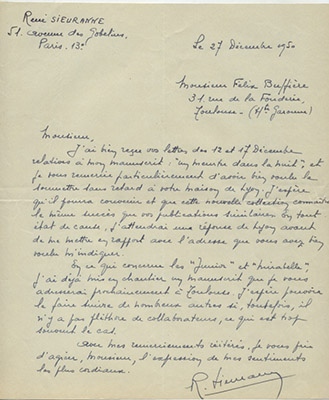 René SIEURANNE
51. avenue des Gobelins,
Paris. 13e
Le 27 Décembre 1950
Monsieur Félix Buffière
31. rue de la Fonderie,
Toulouse - (Hte Garonne)
Monsieur,
J'ai bien reçu vos lettres des 12 et 17 Décembre
relatives à mon manuscrit : "un meurtre dans la nuit", et
je vous remercie particulièrement d'avoir bien voulu le
soumettre sans retard à votre maison de Lyon. J'espère
qu'il pourra convenir et que cette nouvelle collection connaîtra
le même succès que vos publications similaires. En tout
état de cause, j'attendrai une réponse de Lyon avant
de me mettre en rapport avec l'adresse que vous avez bien
voulu m'indiquer.
En ce qui concerne les "Junior" et "Mirabelle",
j'ai déjà mis en chantier un manuscrit que je vous
adresserai prochainement à Toulouse. J'espère pouvoir
le faire suivre de nombreux autres si, toutefois, il
n'y a pas pléthore de collaborateurs, ce qui est trop
souvent le cas.
Avec mes remerciements réitérés, je vous prie
d'agréer, Monsieur, l'expression de mes sentiments
les plus cordiaux.
R. Sieuranne